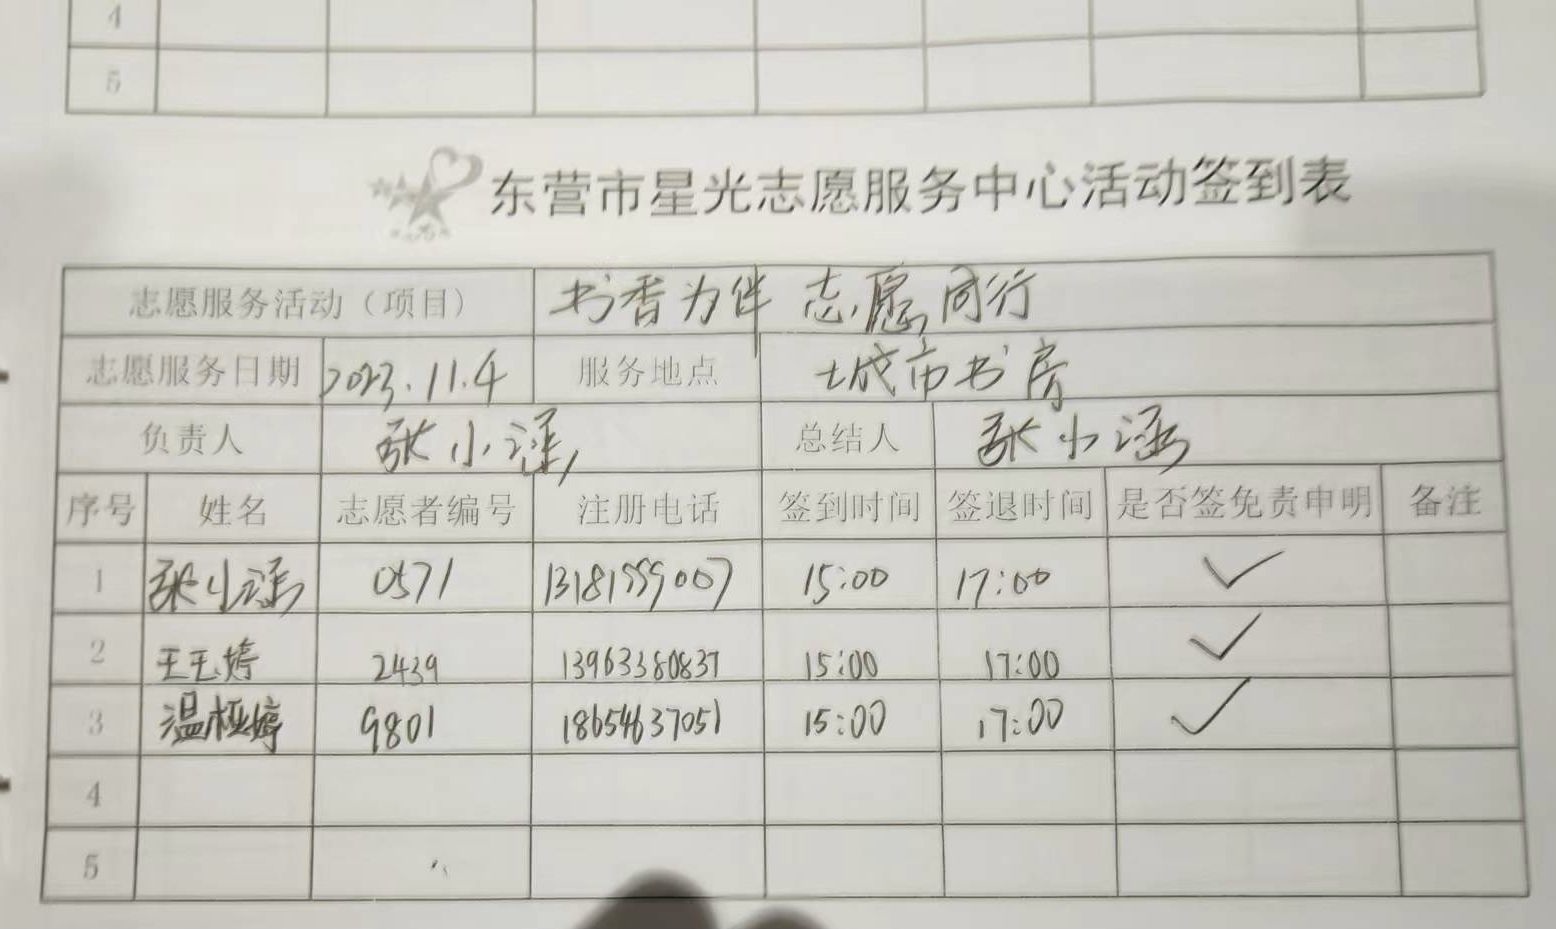 4
5
东营市星光志愿服务中心活动签到表
志愿服务活动（项目） 书香为伴 志愿同行
志愿服务日期 2023.11.4 服务地点 城市书房
负责人 张小涵 总结人 张小涵
序号 姓名 志愿者编号 注册电话 签到时间 签退时间 是否签免责申明 备注
1 张小涵 0571 13181999007 15:00 17:00 ✓
2 王玉婷 2439 13963380837 15:00 17:00 ✓
3 温桠婷 9801 18654637051 15:00 17:00 ✓
4
5